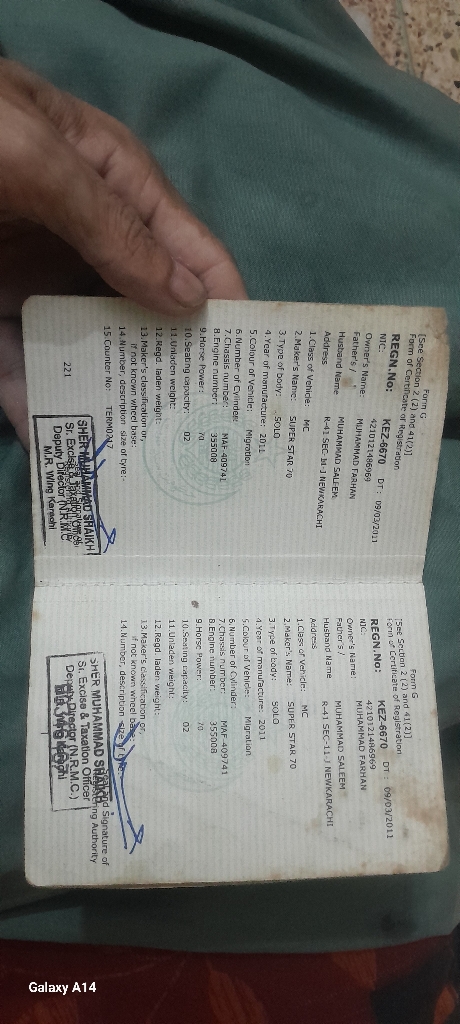 Form G
[See Section 2 (2) and 41(2)]
Form of Certificate of Registration
REGN.No: KEZ-6670 DT: 09/03/2011
NIC: 4210121486969
Owner's Name: MUHAMMAD FARHAN
Father's / MUHAMMAD SALEEM
Husband Name
Address R-41 SEC-11-J NEWKARACHI
1.Class of Vehicle: MC
2.Maker's Name: SUPER STAR 70
3.Type of body: SOLO
4.Year of manufacture: 2011
5.Colour of Vehicle: Migration
6.Number of Cylinder:
7.Chassis number: MAF-409741
8.Engine number: 355008
9.Horse Power: 70
10.Seating capacity: 02
11.Unladen weight:
12.Regd. laden weight:
13.Maker's classification or,
if not known wheel base:
14.Number, description size of tyre:-
15.Counter No:
221
SHER MUHAMMAD SHAIKH
Sr. Excise & Taxation Officer
Deputy Director (N.R.M.C
M.R. Wing Karachi
Form G
[See Section 2 (2) and 41(2)]
Form of Certificate of Registration
REGN.No: KEZ-6670 DT: 09/03/2011
NIC: 4210121486969
Owner's Name: MUHAMMAD FARHAN
Father's / MUHAMMAD SALEEM
Husband Name
Address R-41 SEC-11-J NEWKARACHI
1.Class of Vehicle: MC
2.Maker's Name: SUPER STAR 70
3.Type of body: SOLO
4.Year of manufacture: 2011
5.Colour of Vehicle: Migration
6.Number of Cylinder:
7.Chassis number: MAF-409741
8.Engine number: 355008
9.Horse Power: 70
10.Seating capacity: 02
11.Unladen weight:
12.Regd. laden weight:
13.Maker's classification or,
if not known wheel base:
14.Number, description size
and Signature of
Registering Authority
SHER MUHAMMAD SHAIKH
Sr. Excise & Taxation Officer
Deputy Director (N.R.M.C.)
Galaxy A14